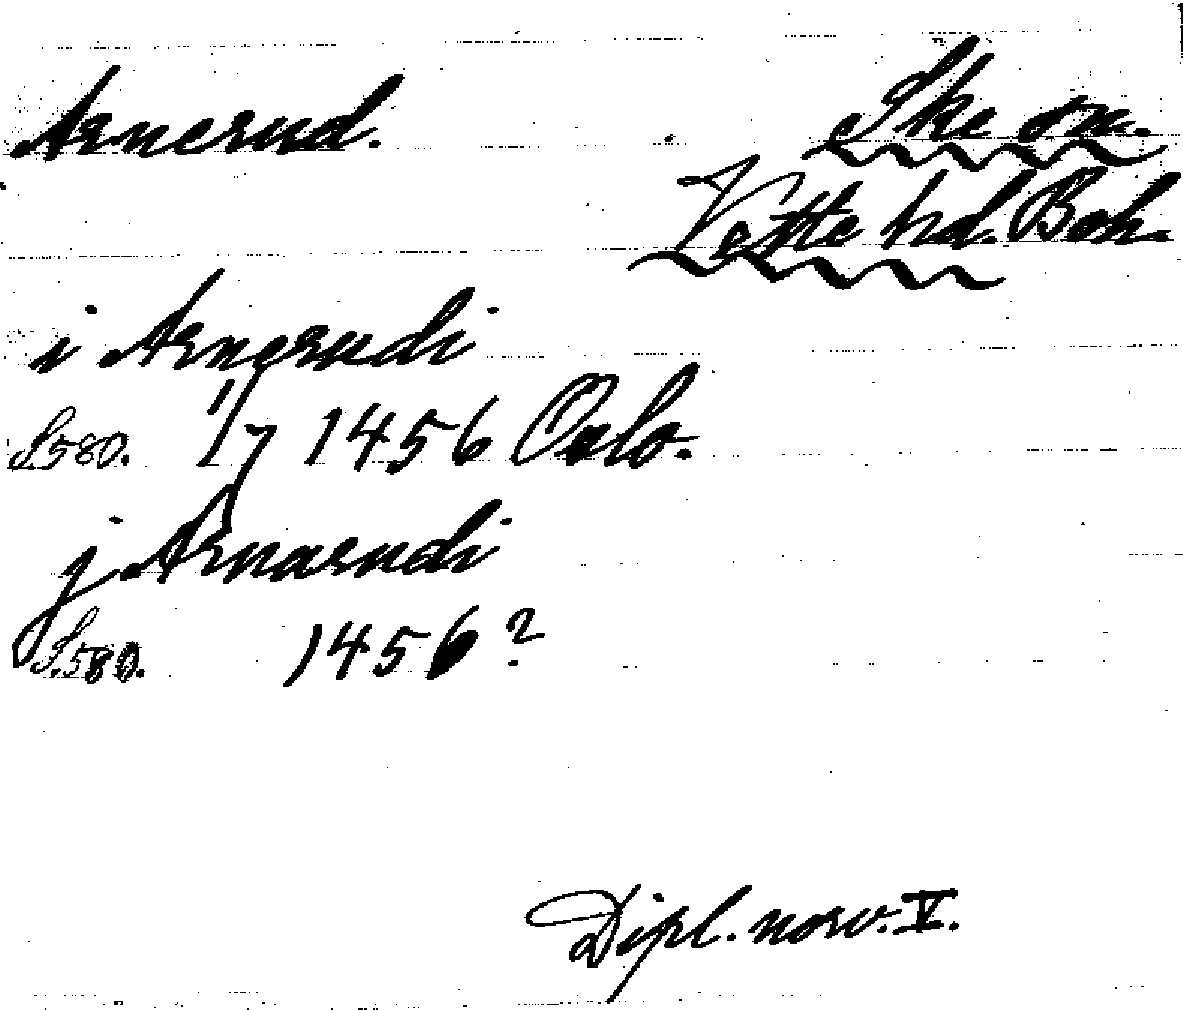 Arnerud. Ske sn.
Vette hd. Boh.
i Arnerudi
S. 580. 1/7 1456 Oslo.
j Arnarudi
S. 580. 1456?
Dipl. norv. V.